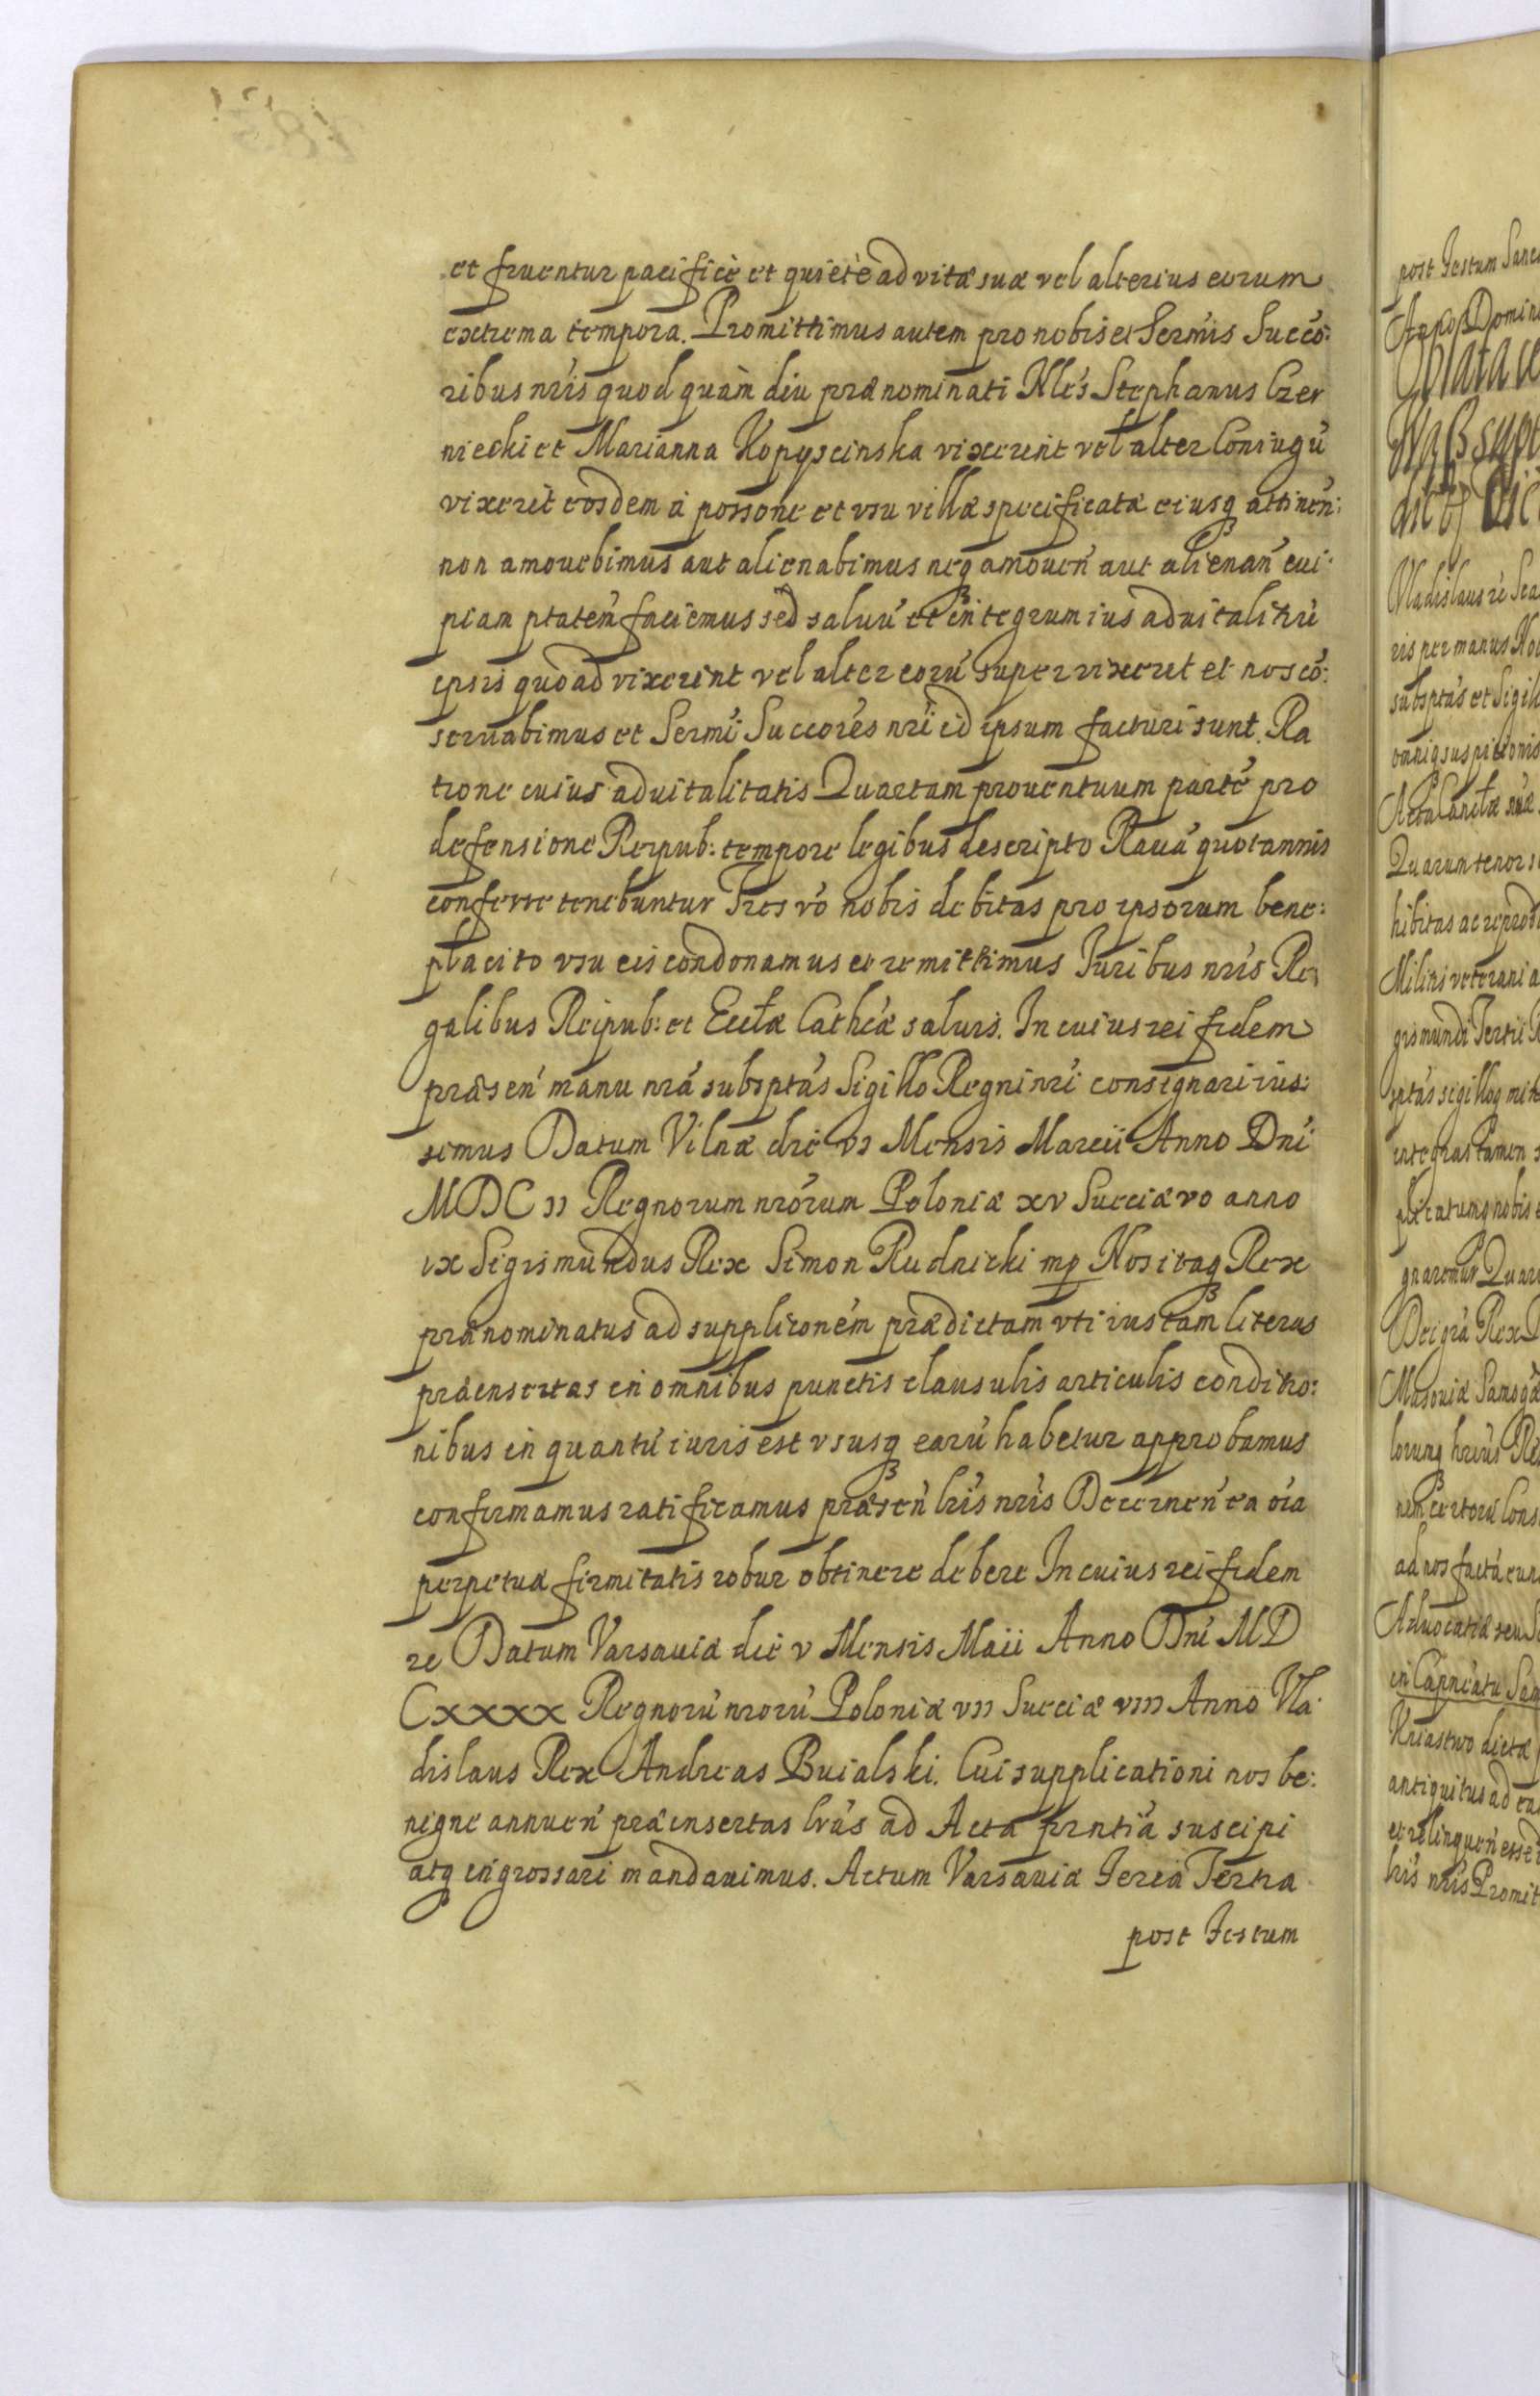 et fruentur pacificè et quietè ad vitæ suæ vel alterius eorum
extrema tempora. Promittimus autem pro nobis et Sermis Succó:
ribus nrís quod quàm diu prænominati Nlés Stephanus Czer
niecki et Marianna Kopyscinska vixerint vel alter Coniugú
vixerit eosdem á possone et vsu villæ specificatæ eiusq attinen:
non amouebimus aut alienabimus neq amouen aut alienan cui:
piam ptatem faciemus sed saluú et integrum ius aduitalitiú
ipsis quoad vixerint vel alter eorú superuixerit et nos có:
seruabimus et Sermi Succorés nrí id ipsum facturi sunt. Ra
tione cuius aduitalitatis Quartam prouentuum parté pro
defensione Reipub: tempore legibus descripto Rauá quotannis
conferre tenebuntur Tres vó nobis debitas pro ipsorum bene:
placito vsu eis condonamus et remittimus Iuribus nrís Re
galibus Reipub: et Ecclæ Cathcæ saluis. In cuius rei fidem
præsen manu nrá subsptás Sigillo Regni nrí consignari ius:
simus Datum Vilnæ die vı Mensis Marcii Anno Dní
MDCıı Regnorum nrórum Poloniæ xv Sueciæ vo anno
ıx Sigismundus Rex Simon Rudnicki mp Nos itaq Rex
prænominatus ad supplicioném prædictam vti iustam literas
præinsertas in omnibus punctis clausulis articulis conditio:
nibus in quantú iuris est vsusq earú habetur approbamus
confirmamus ratificamus præsen lrís nrís Decernen ea oía
perpetuæ firmitatis robur obtinere debere In cuius rei fidem
re Datum Varsauiæ die v Mensis Maii Anno Dní MD
Cxxxx Regnorú nrorú Poloniæ vıı Sueciæ vııı Anno Vla
dislaus Rex Andreas Buialski. Cui supplicationi nos be:
nigne annuen præinsertas lrás ad Acta prntiá suscipi
atq ingrossari mandauimus. Actum Varsauiæ Feria Tertia
post Festum
post Festum
Domini
Oblata
Vladislaus
ris per manus
subsptás et Sigill
suspicionis
Acta
Quarum tenor
hibitas ac
Militis veterani
gismundi Tertii
sptás sigilloq
integras tamen
nobis
gnaremur Quar
Dei grá Rex
Masouiæ Samog
ad nos factá
Aduocatiæ seu
in Capneatu Sam
dictæ
antiquitus ad
et relinquen esse
lrís nrís Promit